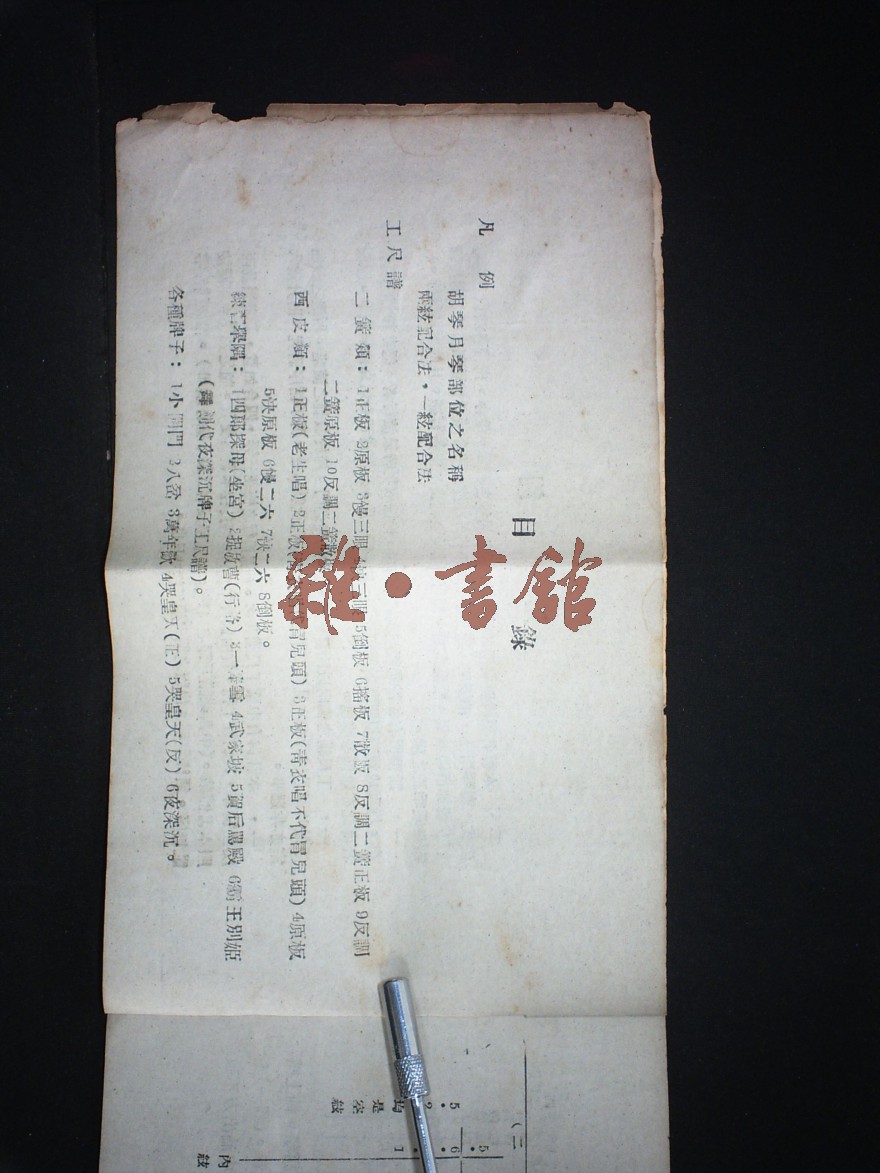 目錄
凡例
胡琴月琴部位之名稱
兩絃配合法，一絃配合法
工尺譜
二簧類：1正板 2原板 3慢三眼 5倒板 6搖板 7散板 8反調二簧正板 9反調
二簧原板 10反調二簧
西皮類：1正板(老生唱) 2正板 冒兒頭) 3正板(青衣唱不代冒兒頭) 4原板
5快原板 6慢二六 7快二六 8倒板。
練習舉隅：1四郎探母(坐宮) 2捉放曹(行路) 3一捧雪 4武家坡 5賀后罵殿 6霸王別姬
(舞劍代夜深沉牌子工尺譜)。
各種牌子：1小開門 2八岔 3萬年歡 4哭皇天(正) 5哭皇天(反) 6夜深沉。
雜·書館
(二
5 6
5 2 1
均是空絃
內絃